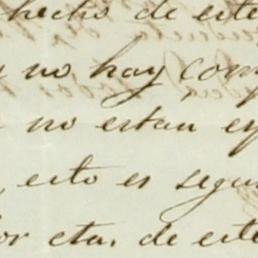 hecho de este
y no hay com
no estan ey
, esto es segu
or eta. de este